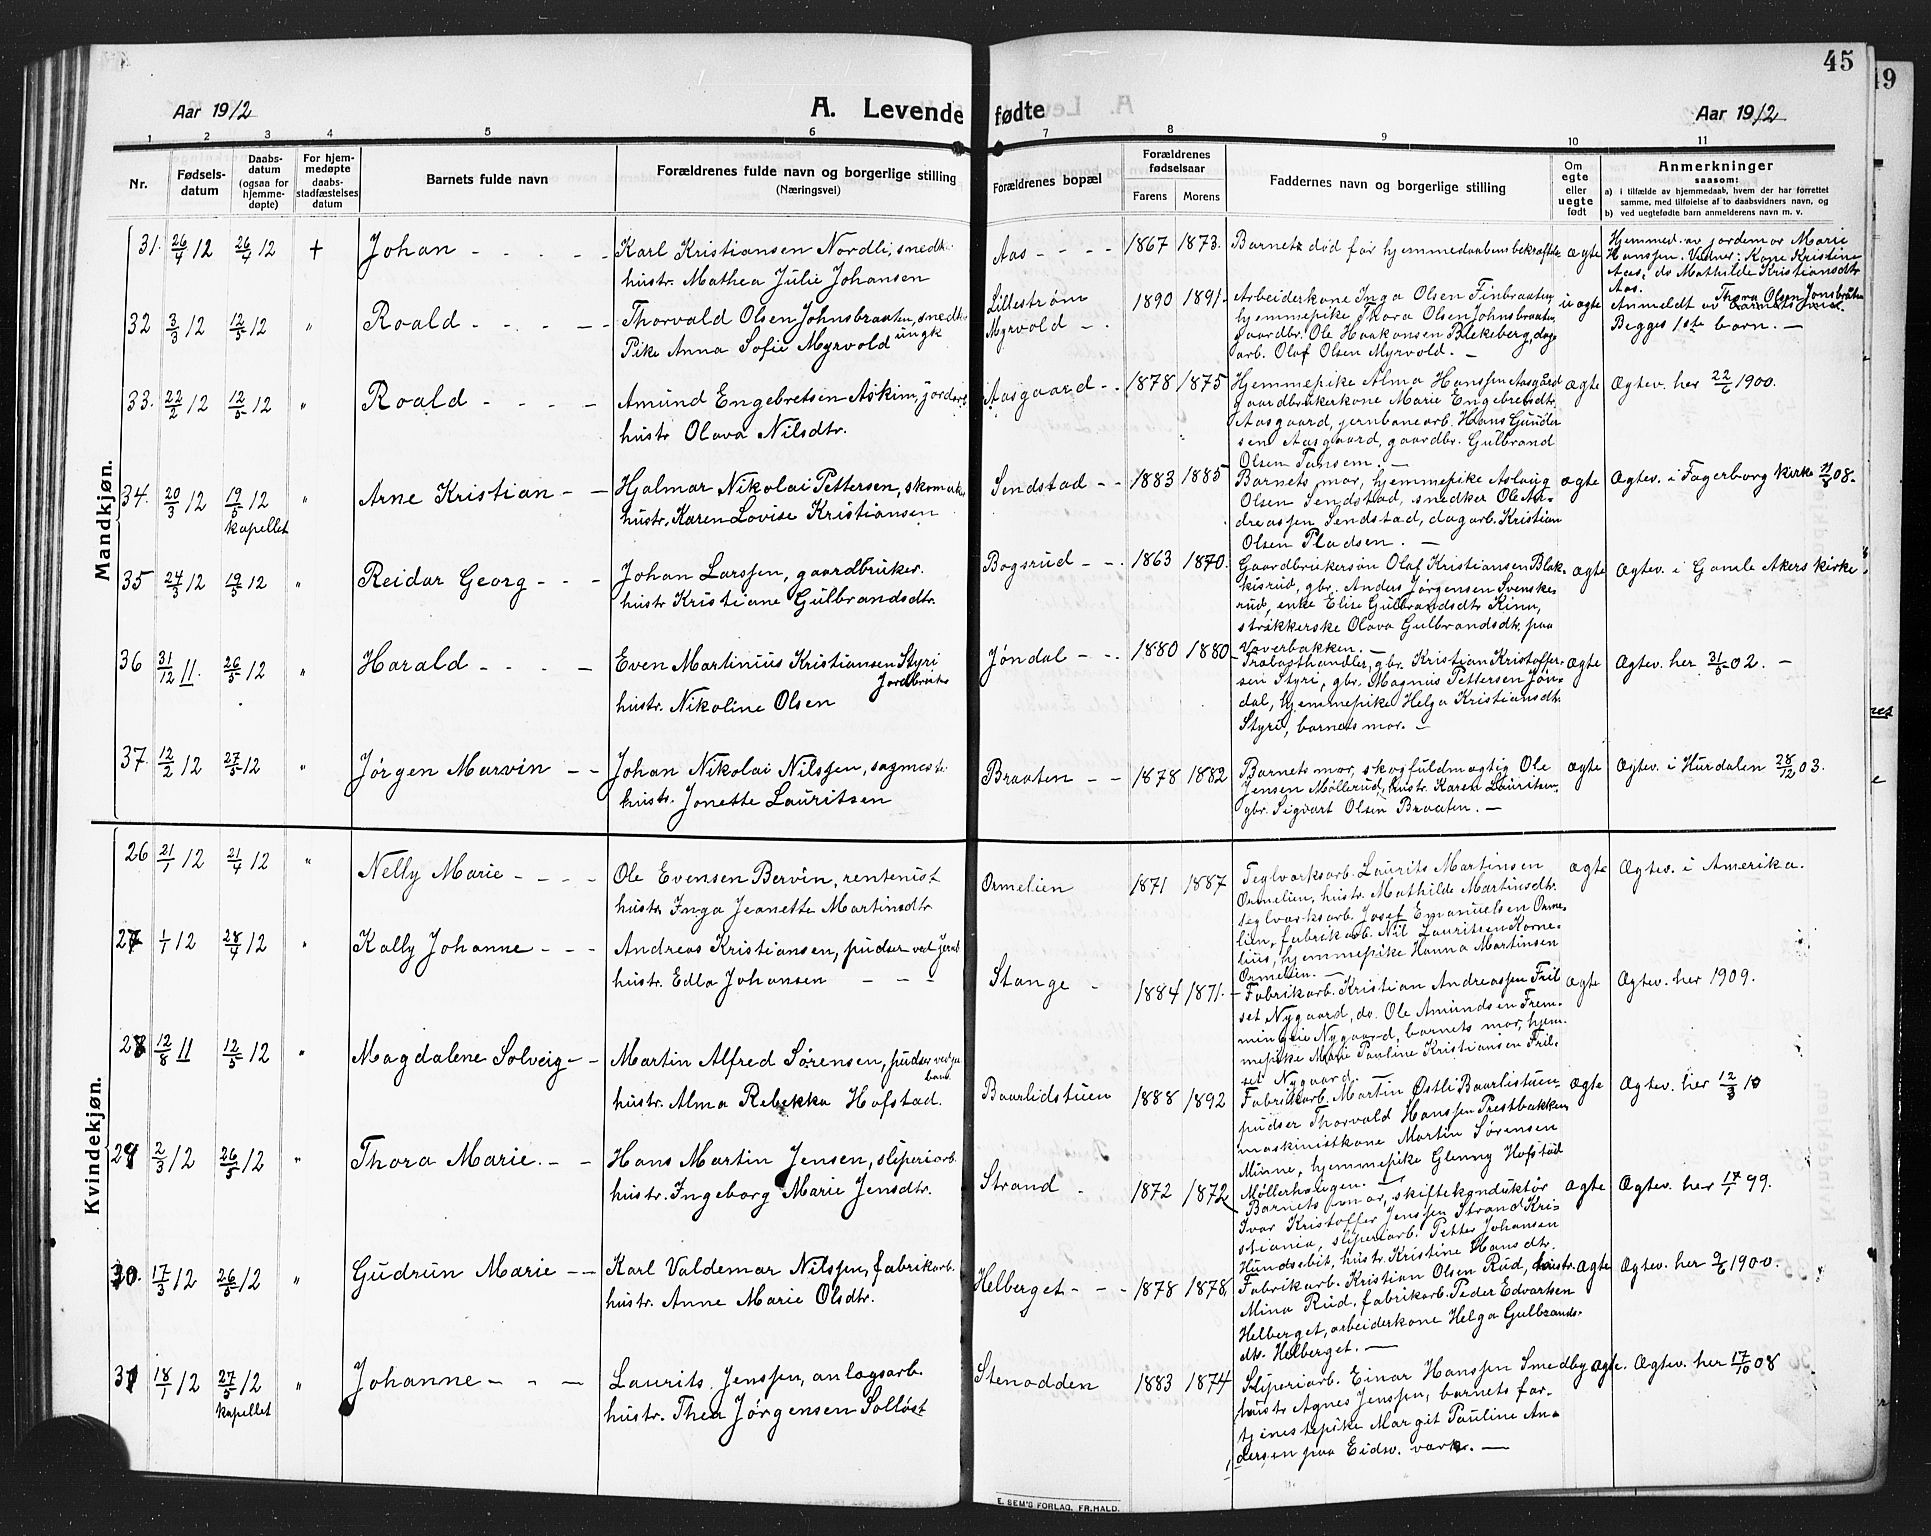 45
49
Aar 1912
A. Levende fødte
Aar 1912
1 2 3 4 5 6 7 8 9 10 11
Nr.
Fødsels-
datum
Daabs-
datum
(ogsaa for
hjemme-
døpte)
For hjem-
medøpte
daabs-
stadfæstelses
datum
Barnets fulde navn
Forældrenes fulde navn og borgerlige stilling
(Næringsvei)
Forældrenes bopæl
Forældrenes
fødselsaar
Farens Morens
Faddernes navn og borgerlige stilling
Om
egte
eller
uegte
født
Anmerkninger
saasom:
a) i tilfælde av hjemmedaab, hvem der har forrettet
samme, med tilføielse af to daabsvidners navn, og
b) ved uegtefødte barn anmelderens navn m. v.
Mandkjøn.
31. 26/4 12 26/4 12 + Johan - - - - -
Karl Kristiansen Nordli, snedk.
hustr. Mathea Julie Johansen
Aas - - - 1867 1873.
Barnet død før hjemmedaabens bekræftelse
ægte
Hjemmed. av jordemor Marie
Hanssen. Vidner: Kone Kristine
Aas, do Mathilde Kristiansdtr
Aas.
32 3/3 12 12/5 12 " Roald - - - -
Thorvald Olsen Johnsbraaten, snedk.
ungk
Pike Anna Sofie Myrvold
Lillestrøm
Myrvold - . 1890 1891.
Arbeiderkone Inga Olsen Finbraaten,
hjemmepike Thora Olsen Johnsbraaten,
gaardbr. Ole Haakonsen Blekeberg, dag
arb. Olaf Olsen Myrvold. -
uægte
Thora Olsen Jonsbråten
Anmeldt av
Begges 1ste barn. -
33. 22/2 12 12/5 12 " Roald - - - -
Amund Engebretsen Askim, jordbr.
hustr Olava Nilsdtr.
Aasgaard - . 1878 1875
Hjemmepike Alma Hanssen Aasgård
gaardbrukerkone Marie Engebretsdtr.
Aasgaard, jernbanearb. Hans Gunder
sen Aasgaard, gaardbr. Gulbrand
Olsen Tansem. -
ægte
Ægtev. her 22/6 1900.
34. 20/3 12 19/5 12 " Arne Kristian - -
kapellet
Hjalmar Nikolai Pettersen, skomak.
hustr. Karen Lovise Kristiansen
Sendstad - - 1883 1885
Barnets mor, hjemmepike Aslaug
Olsen Sendstad, snedker Ole An-
dreassen Sendstad, dagarb. Kristian
Olsen Pladsen. -
ægte
Ægtev. i Fagerborg kirke 08.
35 24/3 12 19/5 12 " Reidar Georg - - -
Johan Larssen, gaardbruker.
hustr Kristiane Gulbrandsdtr.
Bogsrud - - . 1863 1870.
Gaardbrukersøn Olaf Kristiansen Blak-
kisrud, gbr. Anders Jørgensen Svenske-
rud, enke Elise Gulbrandsdtr Kinn,
strikkerske Olava Gulbrandsdtr. paa
Vaverbakken. -
ægte
Ægtev. i Gamle Akers kirke
36 31/12 11. 26/5 12 " Harald - - - -
Even Martinius Kristiansen Styri
Jordbruker
hustr. Nikoline Olsen
Jøndal - - . 1880 1880
Trælasthandler, gbr. Kristian Kristoffer-
sen Styri, gbr. Magnus Pettersen Jøn-
dal, hjemmepike Helga Kristiansdtr.
Styri, barnets mor. -
ægte
Ægtev. her 31/5 02. -
37. 12/2 12 27/5 12 " Jørgen Marvin - -
Johan Nikolai Nilssen, sagmest.
hustr. Jonette Lauritsen
Braaten - - 1878 1882
Barnets mor, skogfuldmægtig Ole
Jensen Møllerud, hustr. Karen Lauritsen
gbr. Sigvart Olsen Braaten. -
ægte
Ægtev. i Hurdalen 28/12 03.
Kvindekjøn.
26 21/1 12 21/4 12 " Nelly Marie - - - -
Ole Evensen Bervin, rentenist
hustr. Inga Jeanette Martinsdtr.
Ormelien 1871 1887
Teglverksarb. Laurits Martinsen
Ormelien, hustr. Mathilde Martinsdtr.
teglverksarb. Josef Emanuelsen Orme-
lien, fabrikarb. Nil Lauritsen Korne-
lius, hjemmepike Hanna Martinsen
Ormelien. -
ægte
Ægtev. i Amerika.
27 1/1 12 28/4 12 " Kally Johanne - - -
Andreas Kristiansen, pudser ved jernb.
hustr. Edla Johansen - - -
Stange - 1884 1871.
Fabrikarb. Kristian Andreassen Fril
set Nygaard, do. Ole Amundsen Frem-
mingeie Nygaard, barnets mor, hjem-
mepike Marie Pauline Kristiansen Fril-
set Nygaard. -
ægte
Ægtev. her 1909.
28 12/8 11 12/5 12 " Magdalene Solveig - -
Martin Alfred Sørensen, pudser ved je
bane
hustr. Alma Rebekka Hofstad.
Baarlidstuen 1888 1892
Fabrikarb. Martin Østli Baarlistuen
pudser Thorvald Hanssen Prestbakken,
maskinistkone Martin Sørensen
Minne, hjemmepike Glenny Hofstad
Møllerhaugen. -
ægte
Ægtev. her 12/3 10
29 2/3 12 26/5 12 " Thora Marie. - -
Hans Martin Jensen, sliperiarb.
hustr. Ingeborg Marie Jensdtr.
Strand - 1872 1872
Barnets mor, skiftekonduktør
Ivar Kristoffer Jenssen Strand Kri-
stiania, sliperiarb. Petter Johansen
Hundsebit, hustr. Kristine Hansdtr.
ægte
Ægtev. her 17/1 99.
30. 17/3 12 26/5 12 " Gudrun Marie - -
Karl Valdemar Nilssen, fabrikarb.
hustr. Anne Marie Olsdtr.
Helberget - - - 1878 1878
Fabrikarb. Kristian Olsen Rud, hustr.
Mina Rud, fabrikarb. Peder Edvartsen
Helberget, arbeiderkone Helga Gulbrands-
dtr. Helberget. -
ægte
Ægtev. her 9/6 1900.
31 18/1 12 27/5 12 " Johanne - - -
kapellet
Laurits Jenssen, anlægsarb.
hustr. Thea Jørgensen Solløst
Stenodden 1883 1874
Sliperiarb. Einar Hanssen Smedby
hustr Agnes Jenssen, barnets far.
tjenestepike Margit Pauline An-
dersen paa Eidsv. værk. -
ægte.
Ægtev. her 17/10 08
E. SEM'S FORLAG, FR.HALD.